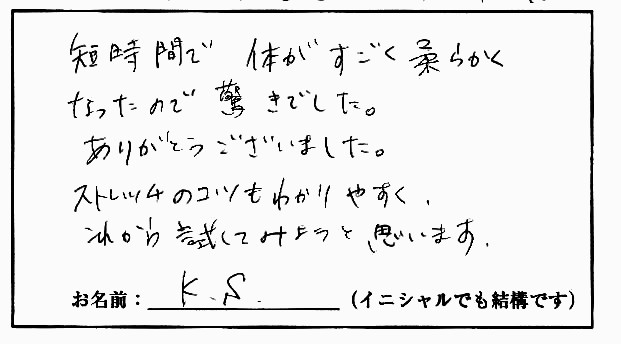 短時間で 体がすごく柔らかく
なったので驚きでした。
ありがとうございました。
ストレッチのコツもわかりやすく、
これから試してみようと思います。
お名前：K.S.（イニシャルでも結構です）